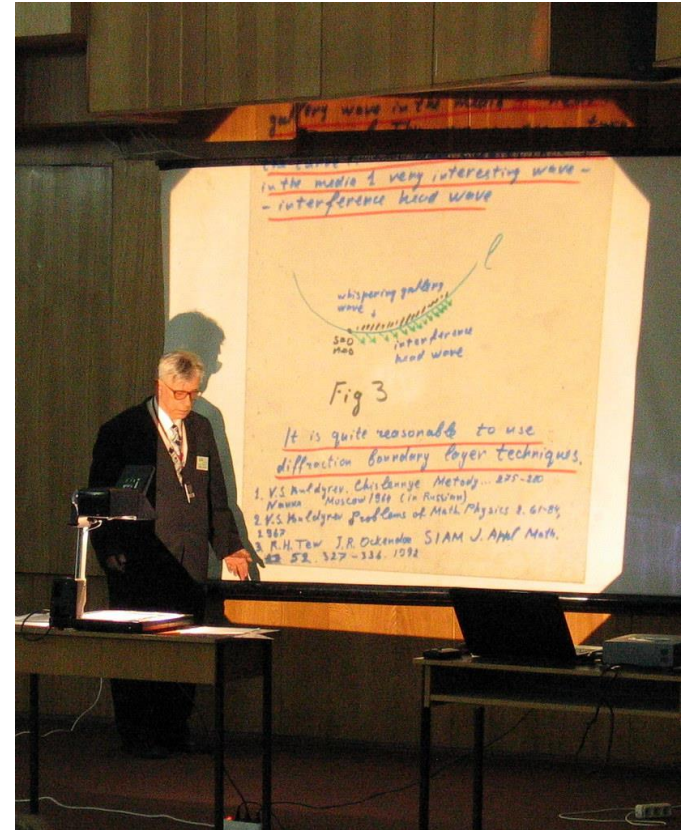 gallery wave in the media
in the media 1 very interesting wave –
– interference head wave
l
whispering gallery
wave
interference
head wave
Fig 3
It is quite reasonable to use
diffraction boundary layer techniques.
1. V.S. Buldyrev. Chislennye Metody... 275-280
Nauka Moscow 1964 (in Russian)
2. V.S. Buldyrev Problems of Math Physics 2. 61-84,
1967
3. R.H. Tew J.R. Ockendon SIAM J. Appl Math.
52. 327-336. 1992